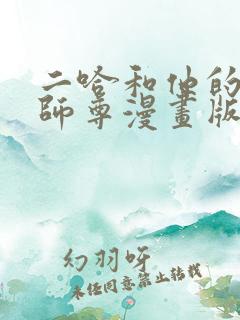 二哈和他的
師尊漫畫版
幻羽呀
未经同意禁止转载